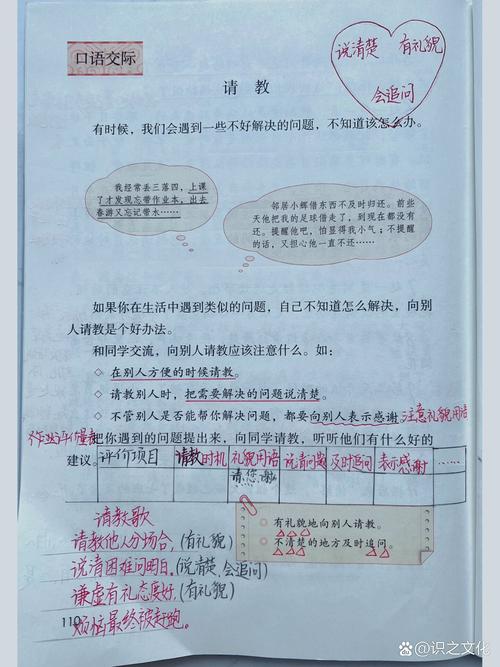 说清楚 有礼貌
会追问
口语交际
请教
有时候，我们会遇到一些不好解决的问题，不知道该怎么办。
我经常丢三落四，上课
了才发现忘带作业本，出去
春游又忘记带水……
邻居小辉借东西不及时归还。前些
天他把我的足球借走了，到现在都没有
还。提醒他吧，怕显得我小气；不提醒
的话，又担心他一直不还……
如果你在生活中遇到类似的问题，自己不知道怎么解决，向别
人请教是个好办法。
和同学交流，向别人请教应该注意什么。如：
◇ 在别人方便的时候请教。
◇ 请教别人时，把需要解决的问题说清楚。
◇ 不管别人是否能帮你解决问题，都要向别人表示感谢。
注意礼貌用语
把你遇到的问题提出来，向同学请教，听听他们有什么好的
建议。
评价项目 请教时机 礼貌用语 说清问题 及时追问 表示感谢 ……
请、您、谢
有礼貌地向别人请教。
不清楚的地方及时追问。
请教歌
请教他人分场合，(有礼貌)
说清困难问明白。(说清楚、会追问)
谦虚有礼态度好，(有礼貌)
烦恼最终被赶跑。
110
@识之文化